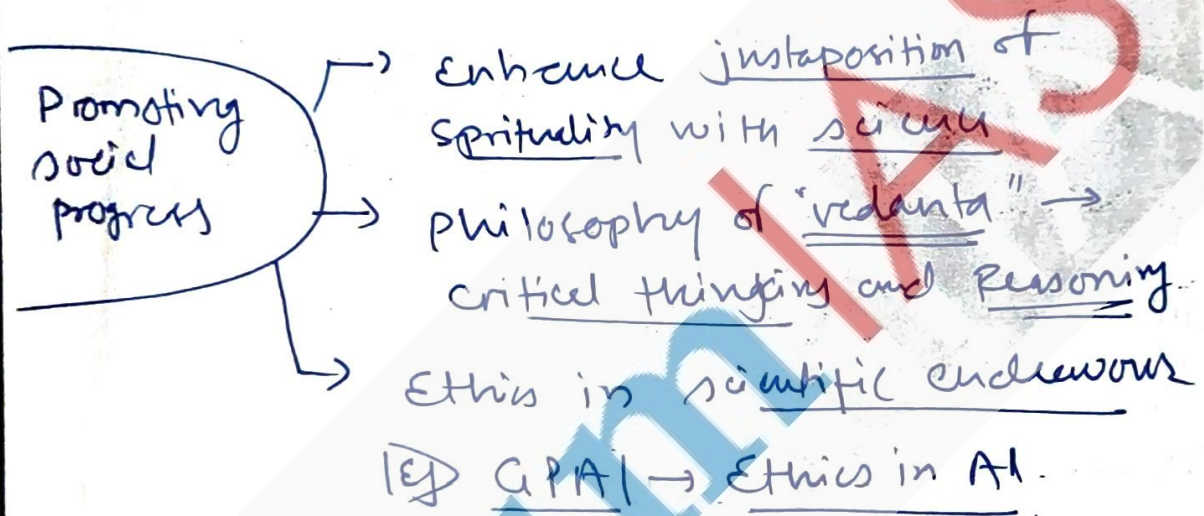 Promoting
social
progress
→ Enhance justaposition of
Sprituality with science
→ Philosophy of "vedanta" →
critical thingking and Reasoning.
→ Ethics in scientific endeavours
Eg GPAI → Ethics in AI.
IAS